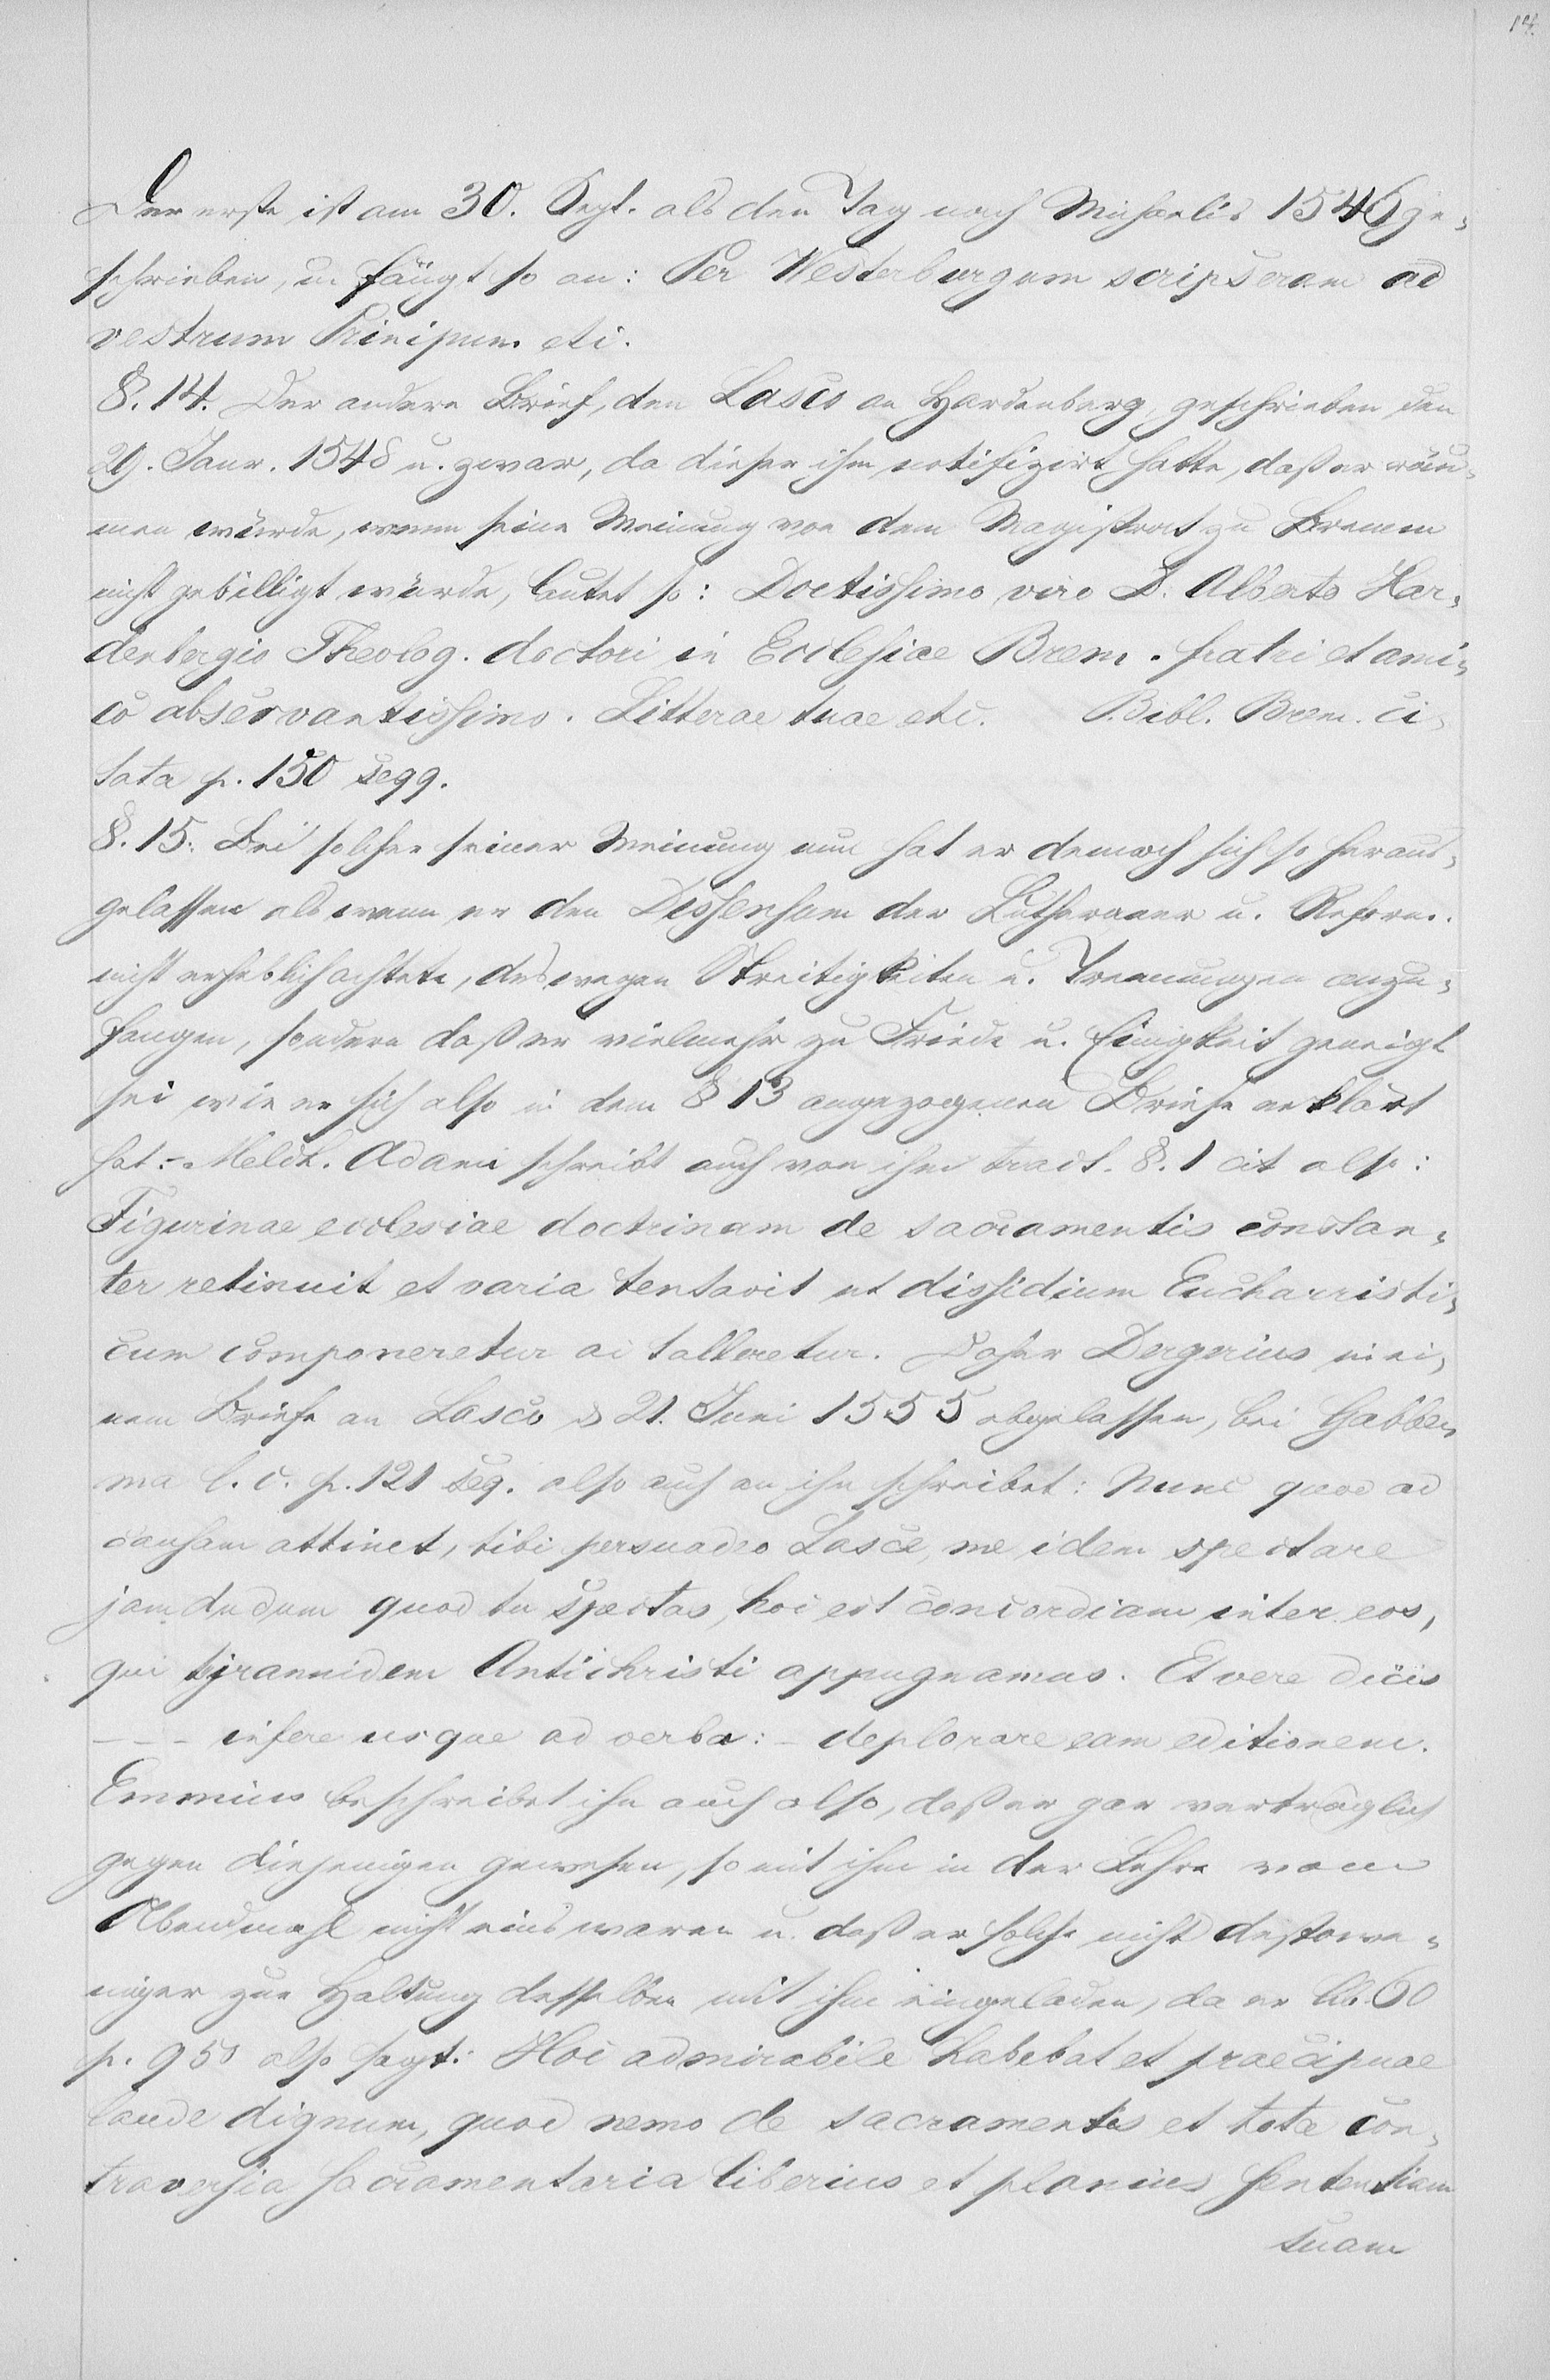 14.
Der erste ist am 30. Sept. als den Tag nach Michaelis 1546 ge-
schrieben, u. fängt so an: Per Westerburgum scripseram ad
vestrum Principem etc.
§. 14. Der andere Brief, den Lasco an Hardenberg, geschrieben den
29. Janr. 1548 u. zwar, da dieser ihm notifizirt hatte, daß er räu-
men würde, wenn seine Meinung von dem Magistrat zu Bremen
nicht gebilligt würde, lautet so: Doctissimo viro D. Alberto Har-
denbergio Theolog. doctori in Ecclesiae Brem. fratri et ami-
co observantissimo. Litterae tuae etc. Bibl. Brem. ci-
tata p. 150 seqq.
§. 15. Bei solcher seiner Meinung nun hat er dennoch sich so heraus-
gelassen als wenn er den Dissensum der Lutheraner u. Reform.
nicht erheblich achtete, deswegen Streitigkeiten u. Trennungen anzu-
fangen, sondern daß er vielmehr zu Friede u. Einigkeit geneigt
sei wie er sich also in dem § 13 angezogenen Briefe erklärt
hat. - Melch. Adami schreibt auch von ihm tract. §. 1 cit also:
Tigurinae ecclesiae doctrinam de sacramentis constan-
ter retinuit et varia tentavit ut dissidium Eucharisti-
cum componeretur ac tolleretur. Daher Vergerius in ei-
nem Briefe an Lasco d 21. Juni 1555 abgelassen, bei Gabbe-
ma l. c. p. 121 seq. also auch an ihn schreibet: Nunc quod ad
causam attinet, tibi persuadeo Lasce, me idem spectare
jam dudum quod tu spectas, hoc est concordiam inter eos,
qui tyrannidem Antichristi oppugnamus. Et vere dicis
--- infere usque ad verba: - deplorare eam editionem.
Emmius beschreibet ihn auch also, daß er gar verträglich
gegen diejenigen gewesen, so mit ihm in der Lehre vom
Abendmahl nicht eins waren u. daß er solche nicht destowe-
niger zur Haltung desselben mit ihm eingeladen, da er lib. 60
p. 950 also sagt: Hoc admirabile habebat et praecipuae
laude dignum, quod nemo de sacramentis et tota con-
traversia sacramentaria liberius et planius sententiam
suam